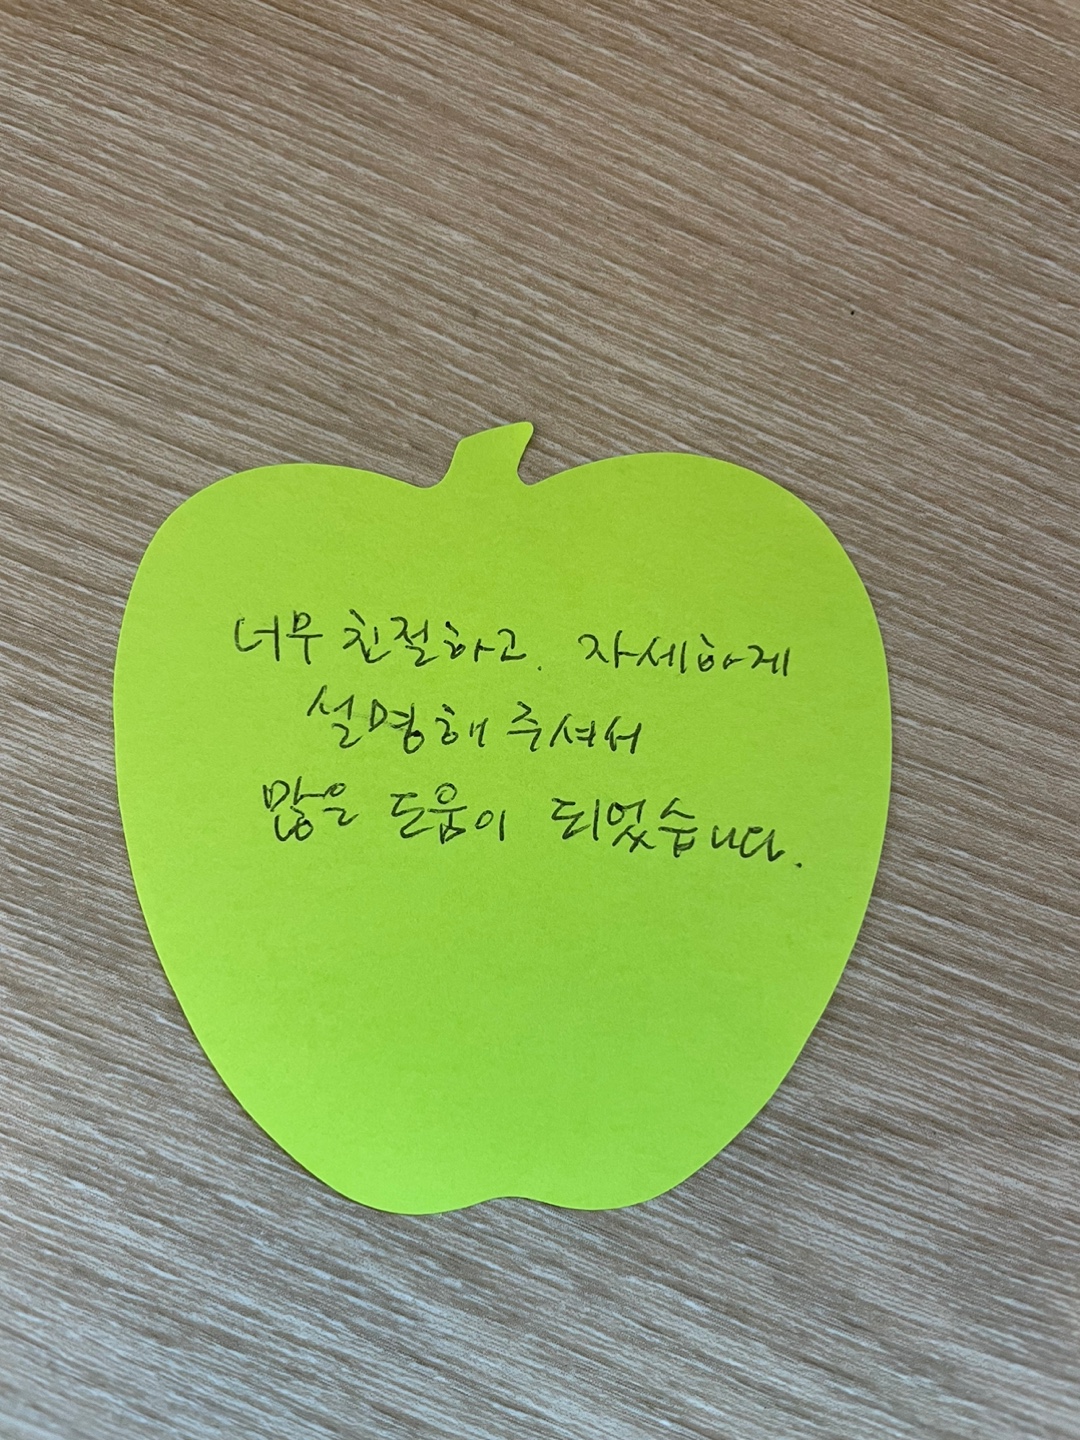 너무 친절하고. 자세하게
설명해 주셔서
많은 도움이 되었습니다.